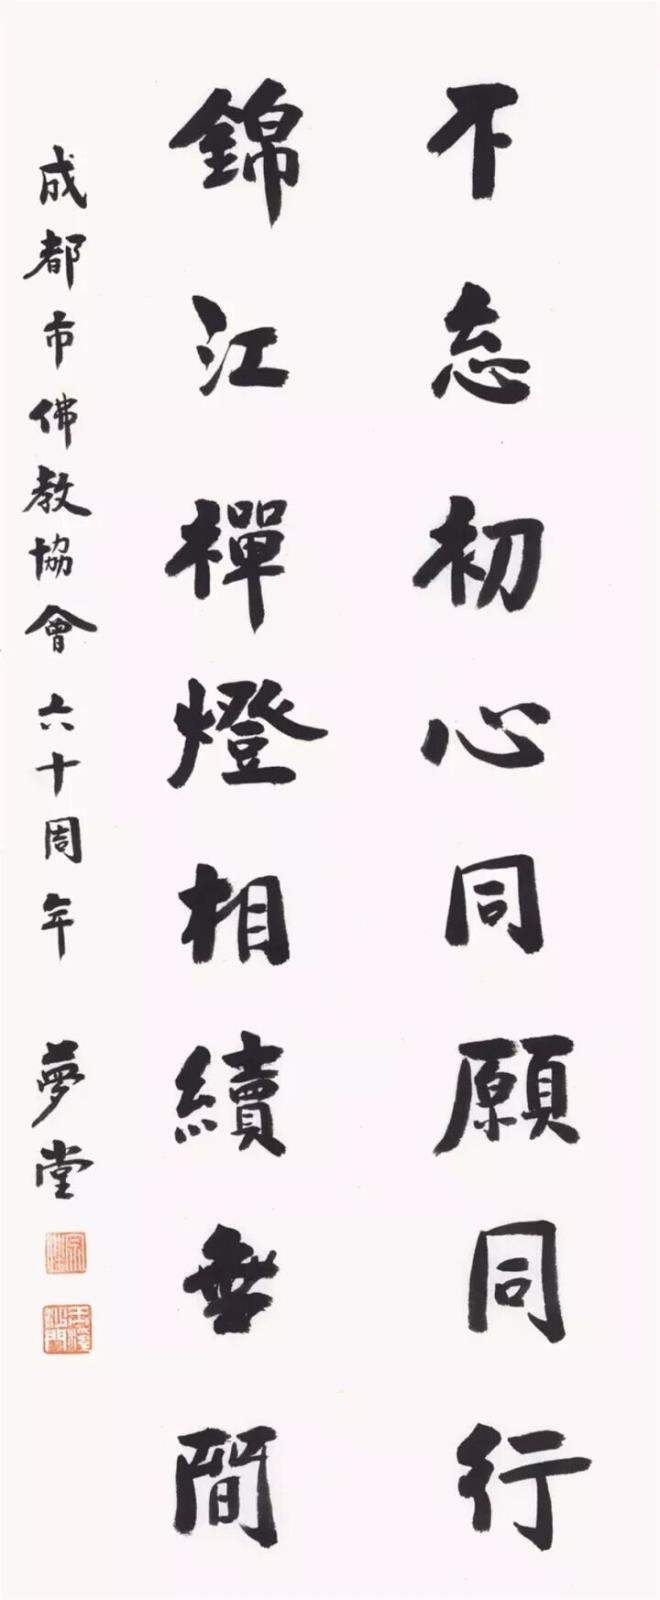 不忘初心同願同行
錦江禪燈相續無間
成都市佛教協會六十周年 夢堂